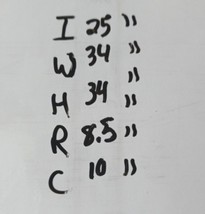 I 25 "
W 34 "
H 34 "
R 8.5 "
C 10 "